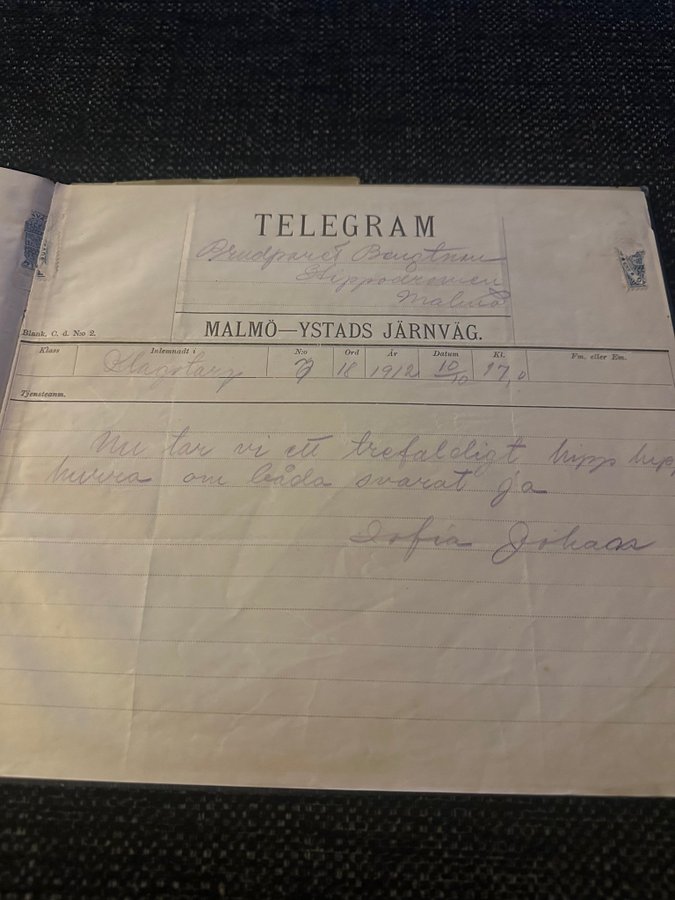 TELEGRAM
Brudparet Bengtson
Hippodromen
Malmö
Blank. C. d. N:o 2.
MALMÖ—YSTADS JÄRNVÄG.
Klass Inlemnadt i N:o Ord År Datum Kl. Fm. eller Em.
18 1912 10/10 17,0
Tjensteanm.
Nu tar vi ett trefaldigt hipp hipp
hurra om båda svarat ja
Sofia Johan